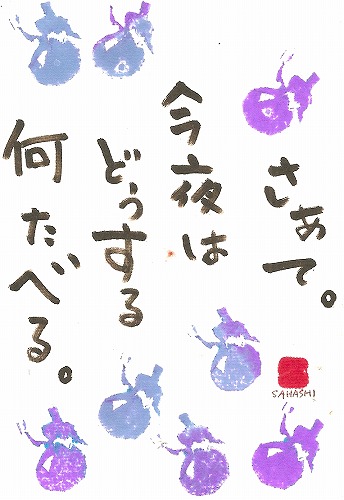 さあて。
今夜は
どうする
何たべる。
SAHASHI